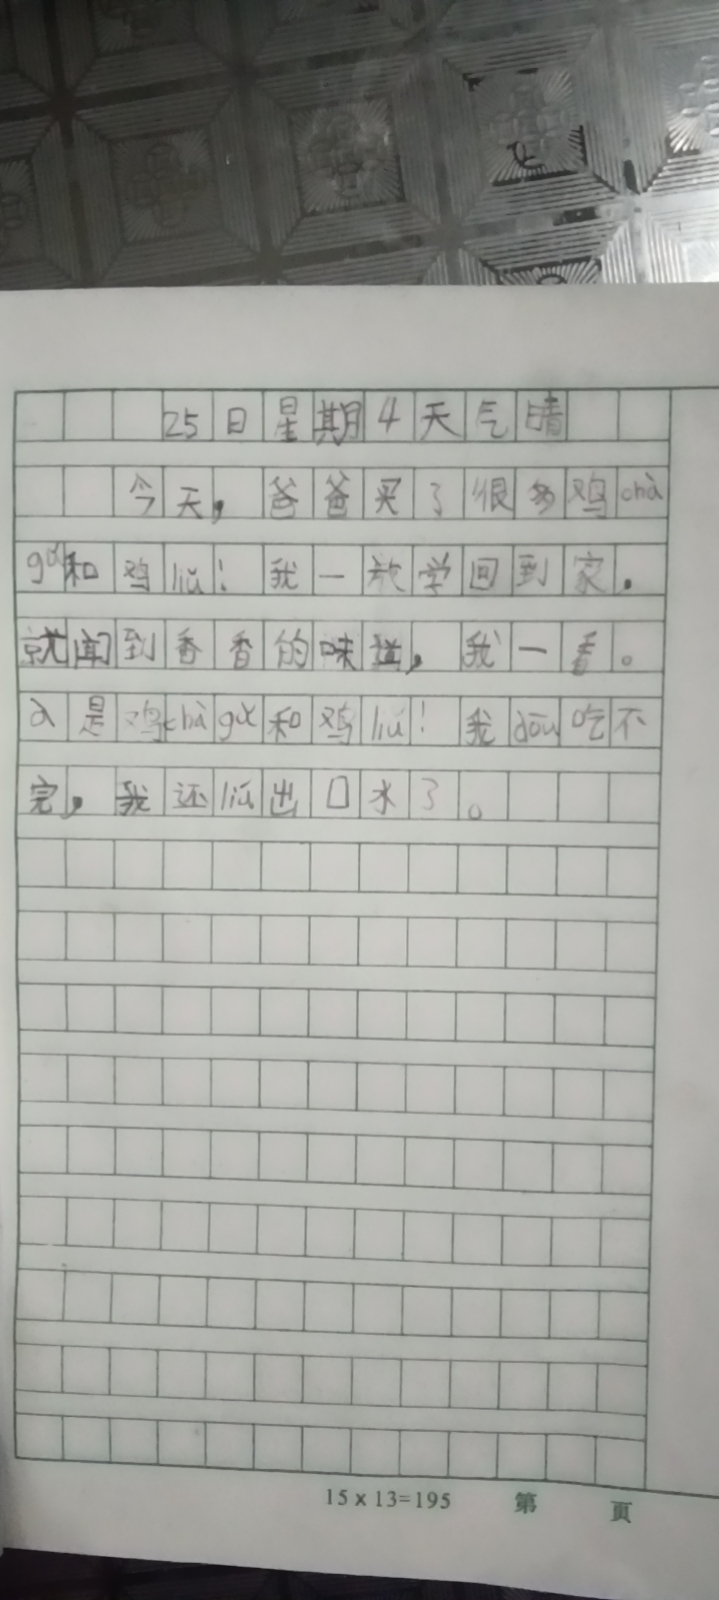 25日星期4天气晴
今天，爸爸买了很多鸡chà
gǔ和鸡liǔ！我一放学回到家，
就闻到香香的味道，我一看。
à是鸡chàgǔ和鸡liǔ！我dōu吃不
完，我还liú出口水了。
15×13=195 第 页